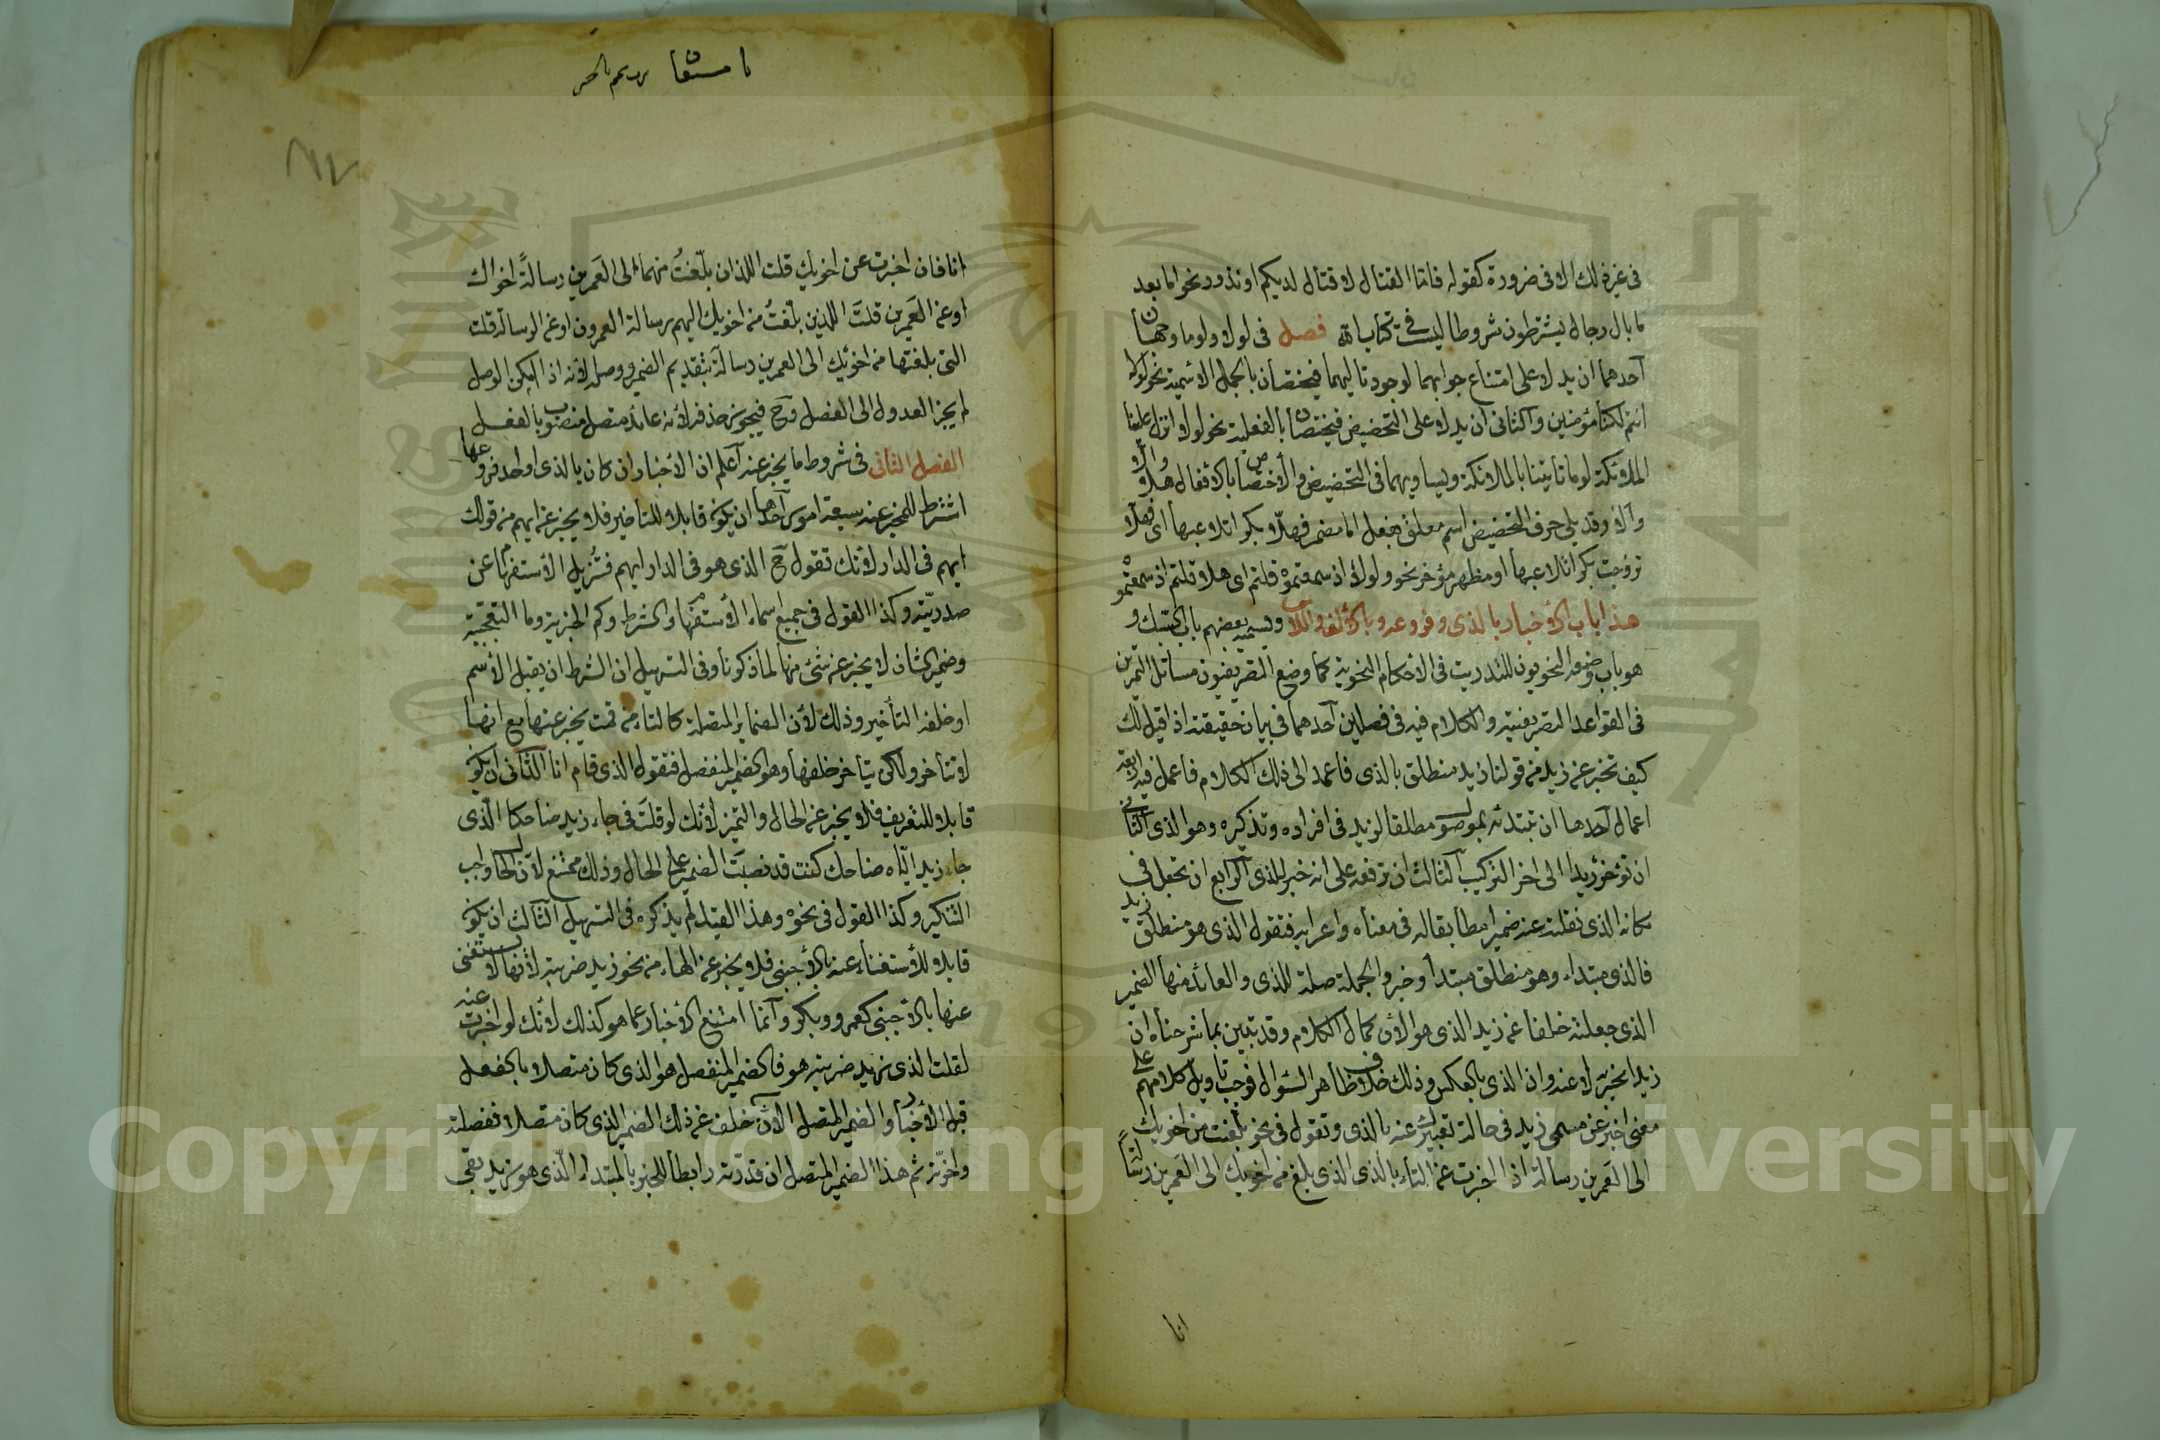 فى غير ذلك الا فى ضرورة كقوله فاما القتال لا قتال لديكم او ندور نحو اما بعد
ما بال رجال يشترطون شروطا ليست فى كتاب الله فصل فى لولا ولوما وجهان
أحدهما ان يدلا على امتناع جوابهما لوجود تاليهما فيختصان بالجمل الاسمية نحو لولا
انتم لكنا مؤمنين والثانى ان يدلا على التحضيض فيختصان بالفعلية نحو لولا انزل علينا
الملائكة لوما تاتينا بالملائكة ويساويهما فى التحضيض والاختصاص بالافعال هلا والا
وألا وقد يلى حرف التحضيض اسم معلق بفعل اما مضمر فهلا بكرا تلاعبها اى فهلا
تزوجت بكرا تلاعبها او مظهر مؤخر نحو ولولا اذ سمعتموه قلتم اى هلا قلتم اذ سمعتموه
هذا باب الأخبار بالذى وفروعه وبالألف واللام ويسميه بعضهم باب السبك و
هو باب وضعه النحويون للتدريب فى الاحكام النحوية كما وضع التصريفيون مسائل التمرين
فى القواعد التصريفية والكلام فيه فى فصلين أحدهما فى بيان حقيقته اذا قيل لك
كيف تخبر عن زيد من قولنا زيد منطلق بالذى فاعمد الى ذلك الكلام فاعمل فيه اربعة
اعمال أحدها ان تبتدئه بموصول مطابقا لزيد فى افراده وتذكيره وهو الذى الثانى
ان تؤخر زيدا الى اخر التركيب الثالث ان ترفعه على انه خبر للذى الرابع ان تجعل فى
مكانه الذى نقلته عنه ضميرا مطابقا له فى معناه واعرابه فتقول الذى هو منطلق زيد
فالذى مبتداء وهو منطلق مبتدأ وخبر والجملة صلة للذى والعائد منها الضمير
الذى جعلته خلفا عن زيد الذى هو الان كمال الكلام وقد تبين بما شرحناه ان
زيدا مخبر به لا عنه وان الذى بالعكس وذلك خلاف ظاهر السؤال فوجب تاويل كلامهم على
معنى اخبر عن مسمى زيد فى حالة تعبيرك عنه بالذى وتقول فى نحو بلغت من اخويك
الى العمرين رسالة اذا اخبرت عن التاء بالذى الذى بلغ من اخويك الى العمرين رسالة
انا
انا فان اخبرت عن اخويك قلت اللذان بلّغتُ منهما الى العَمرين رسالةً اخواك
او عن العَمرين قلتَ الذين بلّغتُ من اخويك اليهم رسالة العمرون او عن الرسالة قلت
التى بلغتها من اخويك الى العمرين رسالة بتقديم الضمير ووصله لانه اذا امكن الوصل
لم يجز العدول الى الفصل وح فيجوز حذفه لأنه عائد متصل منصوب بالفعل
الفصل الثانى فى شروط ما يخبر عنه أعلم ان الأخبار ان كان بالذى او احد فروعها
اشترط للمخبر عنه سبعة امور أحدها ان يكون قابلا للتأخير فلا يخبر عن ايهم من قولك
ايهم فى الدار لانك تقول ح الذى هو فى الدار ايهم فتزيل الأستفهام عن
صدريّته وكذا القول فى جميع اسماء الأستفهام والشرط وكم الخبرية وما التعجبية
وضمير الشان لا يخبر عن شئ منها لما ذكرنا وفى التسهيل ان الشرط ان يقبل الأسم
او خلفه التأخير وذلك لأن الضماير المتصلة كالتاء من قمت يخبر عنها مع انها
لا تتأخر ولكن يتاخر خلفها وهو الضمير المنفصل فتقول الذى قام انا الثانى ان يكون
قابلا للتعريف فلا يخبر عن الحال والتميز لأنك لو قلتَ فى جاء زيد ضاحكا الّذى
جاء زيد ايّاه ضاحك كنت قد نصبت الضمير على الحال وذلك ممتنع لأن الحال واجب
التنكير وكذا القول فى نحوه وهذا القيد لم يذكره فى التسهيل الثالث ان يكون
قابلا للأستغناء عنه بالأجنبى فلا يخبر عن الهاء من نحو زيد ضربته لأنها لا يستغنى
عنها بالأجنبى كعمرو وبكر وأنما امتنع الأخبار عما هو كذلك لأنك لو اخبرت عنه
لقلت الذى زيد ضربته هو فالضمير المنفصل هو الذى كان متصلا بالفعل
قبل الأخبار والضمير المتصل الآن خلف عن ذلك الضمير الذى كان متصلا ففصلته
واخّرته ثم هذا الضمير المتصل ان قدّرته رابطا للخبر بالمبتداء الّذى هو زيد بقى
Copyright © King Saud University